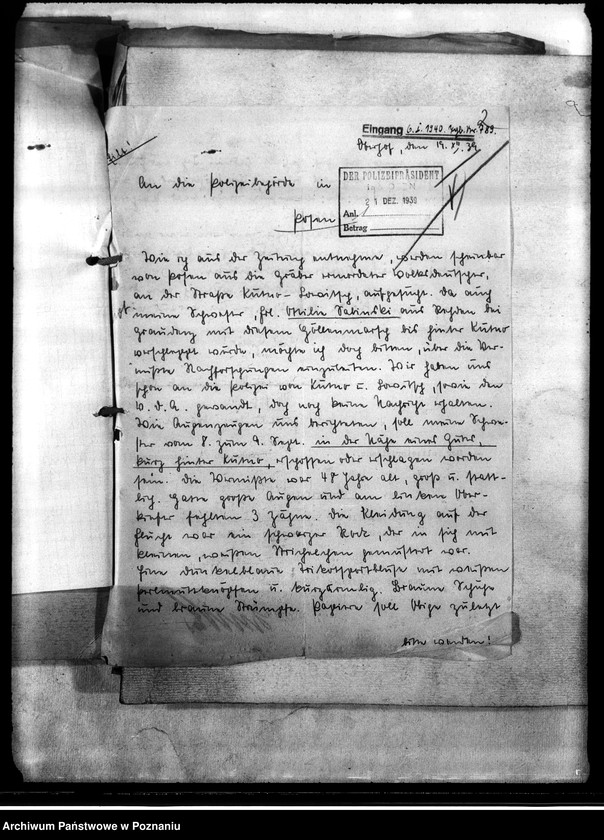 Eingang 6. I. 1940. Tgb. Nr. 789.
Oberhof, den 19. XII. 39.
An die Polizeibehörde in
Posen
DER POLIZEIPRÄSIDENT
21 DEZ. 1939
Anl.
Betrag
Wie ich aus der Zeitung entnehme, werden scheinbar
von Posen aus die Gräber ermordeter Volksdeutscher,
an der Straße Kutno-Lowitsch, aufgesucht. Da auch
meine Schwester, Frl. Ottilie Salinski aus Rehden bei
Graudenz mit diesem Höllenmarsch bis hinter Kutno
verschleppt wurde, möchte ich doch bitten, über die Ver-
mißte Nachforschungen einzuleiten. Wir haben uns
schon an die Polizei von Kutno u. Lowitsch, sowie den
V. d. A. gewandt, doch noch keine Nachricht erhalten.
Wie Augenzeugen uns berichteten, soll meine Schwe-
ster vom 8. zum 9. Sept. in der Nähe eines Gutes,
kurz hinter Kutno, erschossen oder erschlagen worden
sein. Die Vermißte war 48 Jahre alt, groß u. statt-
lich. Hatte große Augen und am linken Ober-
kiefer fehlten 3 Zähne. Die Kleidung auf der
Flucht war ein schwarzer Rock, der in sich mit
kleinen, weißen Strichelchen gemustert war.
Eine dunkelblaue Trikotsportbluse mit weißen
Perlmuttknöpfen u. kurzärmelig. Braune Schuhe
und braune Strümpfe. Papiere soll Obige zuletzt
bitte wenden!
Archiwum Państwowe w Poznaniu